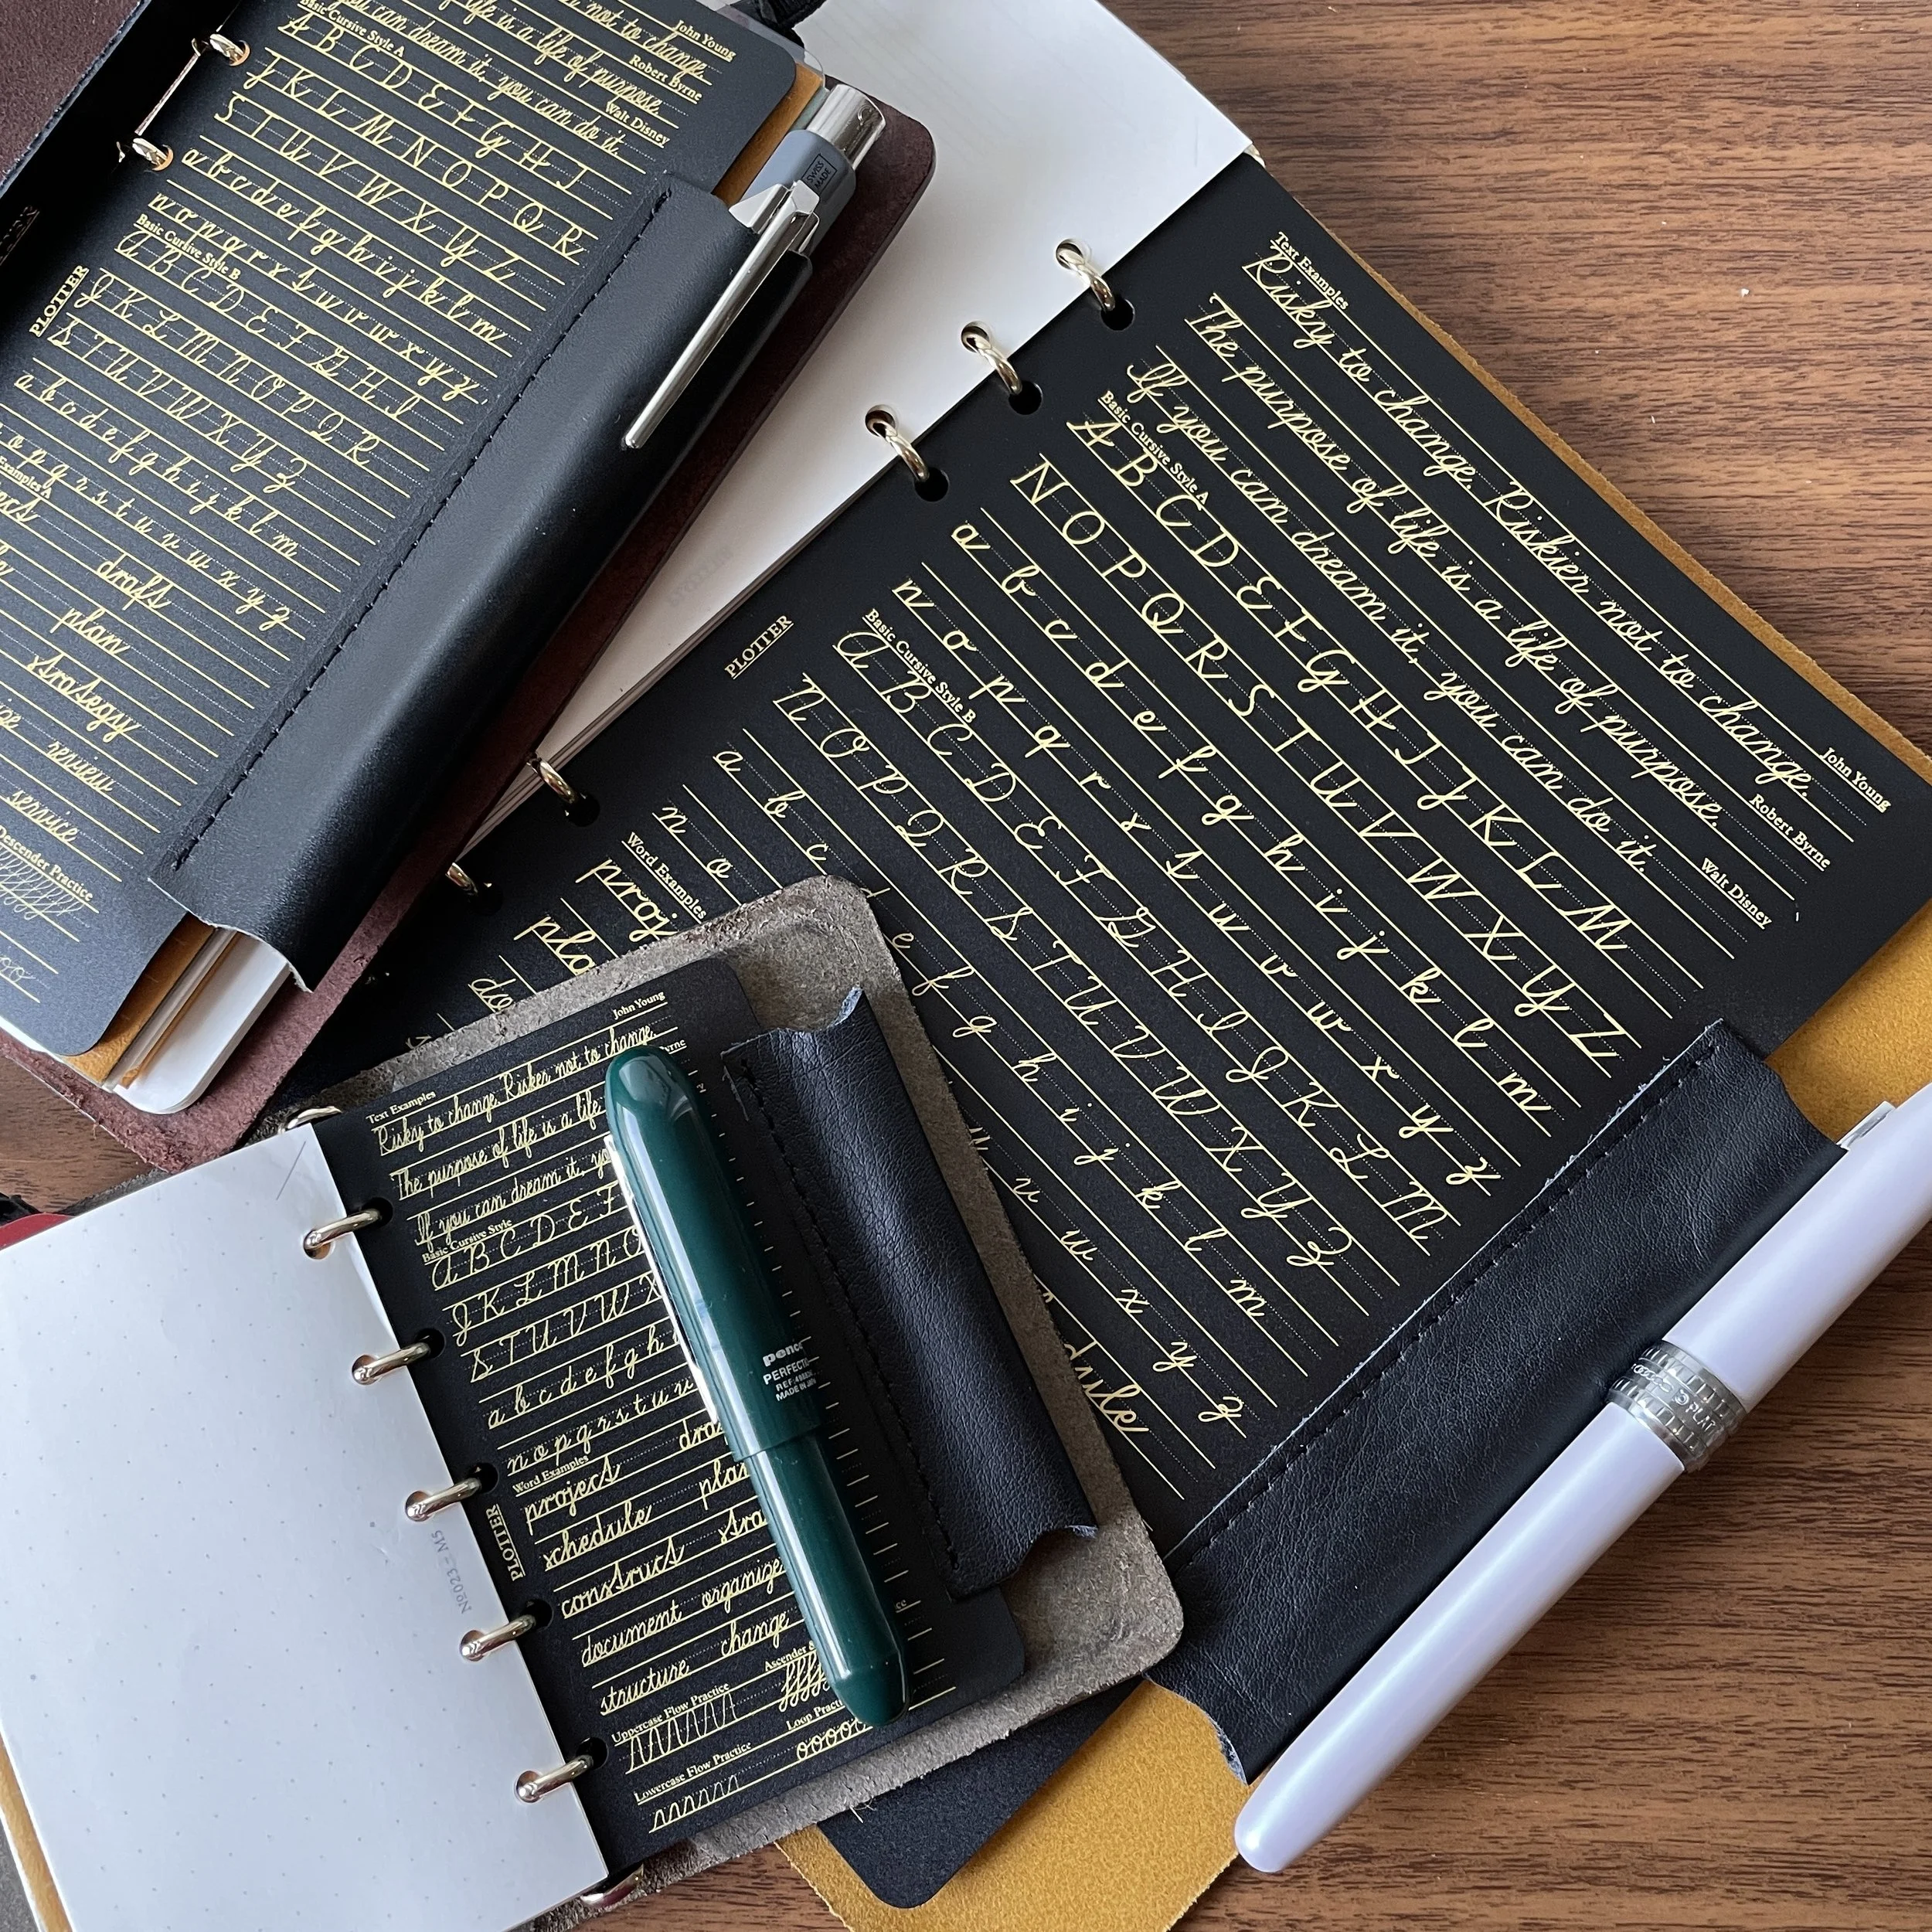 John Young
not to change.
Robert Byrne
life is a life of purpose.
Walt Disney
you can dream it, you can do it.
Basic Cursive Style A
A B C D E F G H I
J K L M N O P Q R
S T U V W X Y Z
a b c d e f g h i j k l m
n o p q r s t u v w x y z
Basic Cursive Style B
A B C D E F G H I
J K L M N O P Q R
S T U V W X Y Z
a b c d e f g h i j k l m
o p q r s t u v w x y z
Examples A
drafts
plan
strategy
review
service
Descender Practice
PLOTTER
SWISS
MADE
Text Examples
Risky to change. Riskier not to change.
John Young
The purpose of life is a life of purpose.
Robert Byrne
If you can dream it, you can do it.
Walt Disney
Basic Cursive Style A
A B C D E F G H I J K L M
N O P Q R S T U V W X Y Z
a b c d e f g h i j k l m
n o p q r s t u v w x y z
Basic Cursive Style B
A B C D E F G H I J K L M
N O P Q R S T U V W X Y Z
a b c d e f g h i j k l m
n o u v w x y z
Word Examples
PLOTTER
John Young
Text Examples
Risky to change. Riskier not to change.
The purpose of life is a life
If you can dream it,
Basic Cursive Style
A B C D E F
J K L M N O
S T U V W X
a b c d e f g h
n o p q r s t u v
Word Examples
project
schedule plan
construct
document organize
structure change
Uppercase Flow Practice
Loop
Lowercase Flow Practice
PLOTTER
№023 M5
penco
MADE IN